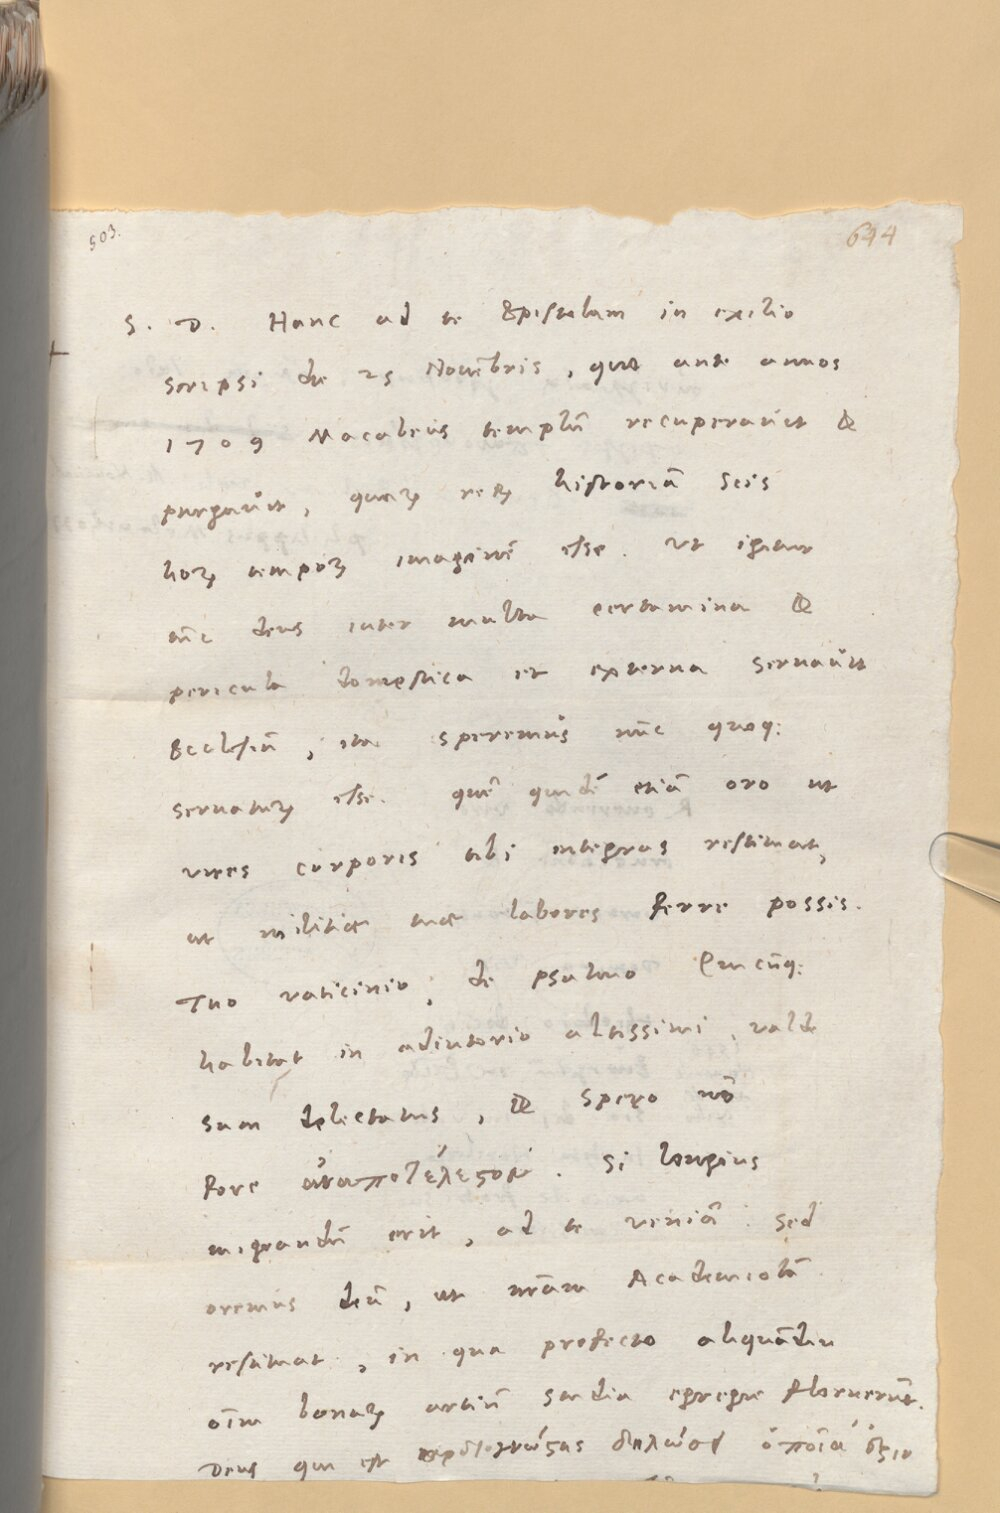 503.
644
S. D. Hanc ad te Epistolam in exilio
scripsi die 25 Nouẽbris, quo ante annos
1709 Macabeus templũ recuperauit &
purgauit, quaꝝ reꝝ historiã scis
hoꝝ tempoꝝ imaginẽ esse. Vt igitur
tũc deus inter multa certamina &
pericula domestica et externa seruauit
Ecclesiã, ita speremus nũc quoq;
seruatuꝝ esse. quẽ quidẽ etiã oro ut
vires corporis tibi integras restituat,
ut militiæ tuæ labores ferre possis.
Tuo vaticinio, de psalmo Qui cũq;
habitat in adiutorio altissimi, valde
sum delectatus, & spero nõ
fore ἀναποτέλεστον. Si longius
migrandũ erit, ad te veniã. Sed
oremus deũ, ut nr̃am Academiolã
restituat, in qua profecto aliquãdiu
oĩm bonaꝝ artiũ studia egregie floruerũt.
Deus qui est δηλώσῃ ὁποῖα